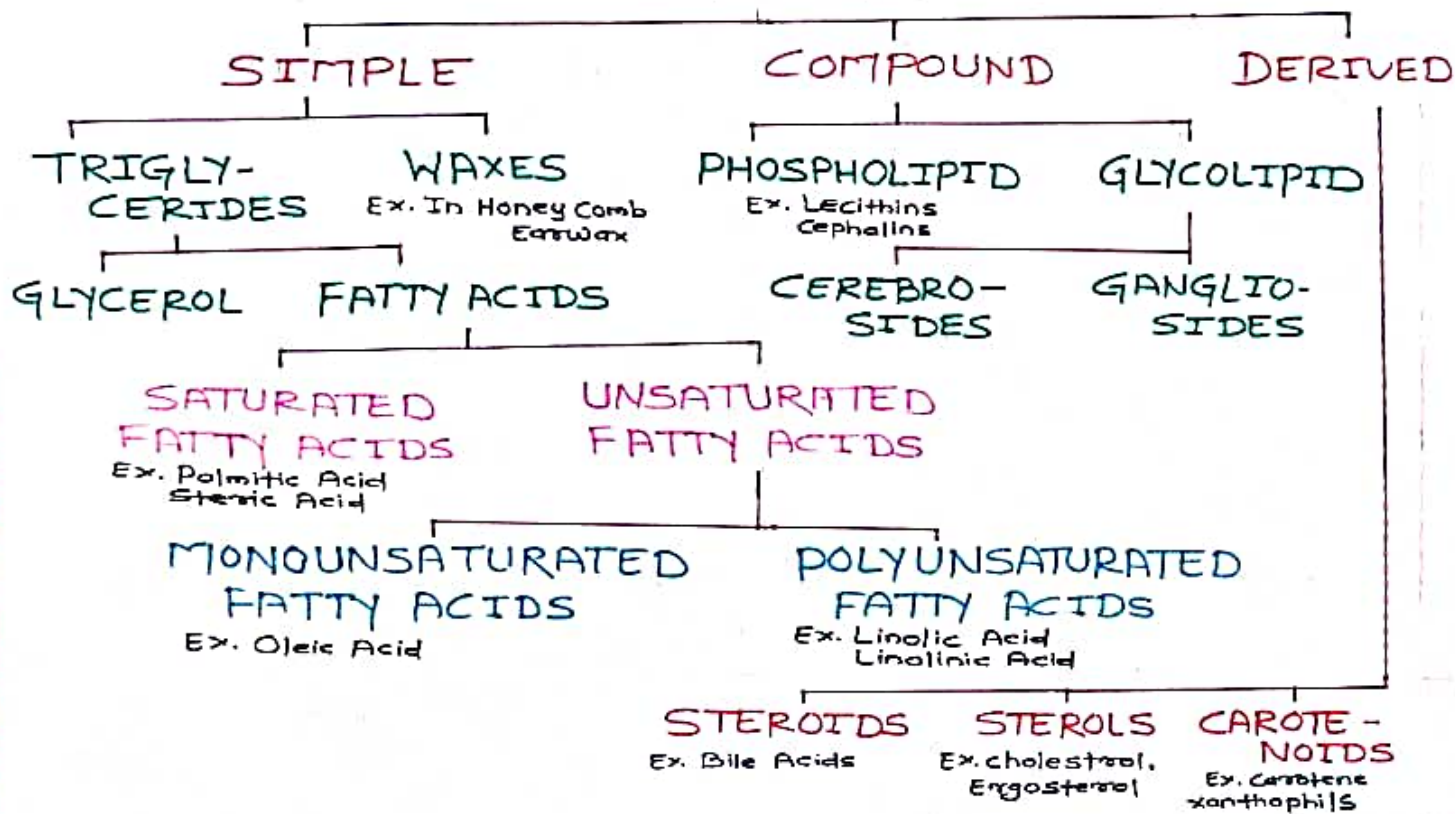 SIMPLE
COMPOUND
DERIVED
TRIGLY-
CERIDES
WAXES
Ex. In Honey Comb
Earwax
PHOSPHOLIPID
Ex. Lecithins
Cephalins
GLYCOLIPID
GLYCEROL
FATTY ACIDS
CEREBRO-
SIDES
GANGLIO-
SIDES
SATURATED
FATTY ACIDS
Ex. Palmitic Acid
Steric Acid
UNSATURATED
FATTY ACIDS
MONOUNSATURATED
FATTY ACIDS
Ex. Oleic Acid
POLYUNSATURATED
FATTY ACIDS
Ex. Linolic Acid
Linolinic Acid
STEROIDS
Ex. Bile Acids
STEROLS
Ex. cholestrol,
Ergosterol
CAROTE-
NOIDS
Ex. Carotene
xanthophils